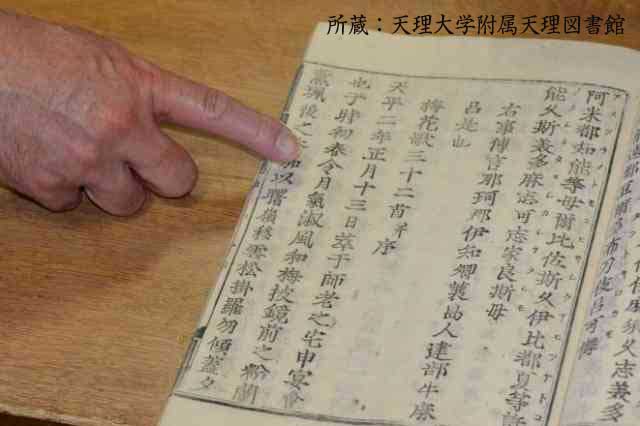 所蔵：天理大学附属天理図書館
久志義多
阿米都知能等母爾比佐斯久伊比都夏等許
能久斯美多麻志可志家良斯母
右事傳言那珂郡伊知郷蓑島人建部牛麻
呂是也
梅花歌三十二首并序
天平二年正月十三日萃于師老之宅申宴會
也于時初春令月氣淑風和梅披鏡前之粉蘭
薫珮後之加以曙嶺移雲松掛羅而傾蓋夕